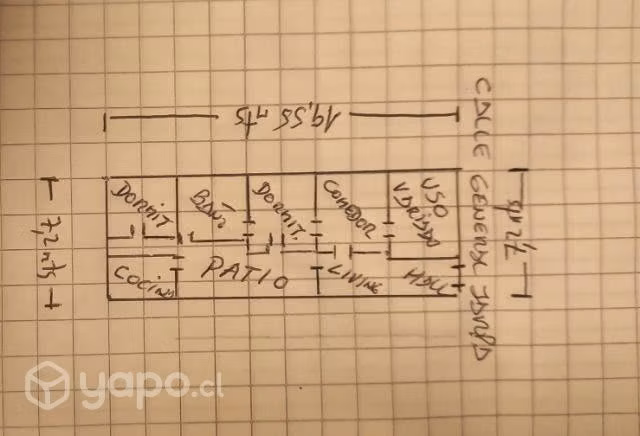 19,55 mts
CALLE GENERAL JARPA
7,2 mts
7,2 mts
DORMIT.
BAÑO
DORMIT.
COMEDOR
USO
VARIADO
COCINA
PATIO
LIVING
HALL
yapo.cl